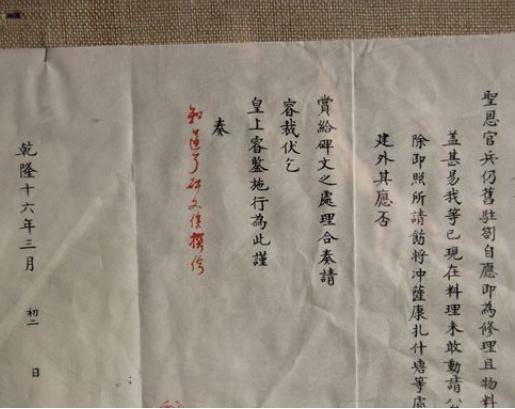 聖恩官兵仍舊駐劄自應即為修理且物料
蓋甚易我等已現在料理未敢動請
除即照所請飭將沖薩康扎什塘等處
建外其應否
賞給碑文之處理合奏請
睿裁伏乞
皇上睿鑒施行為此謹
奏
知道了碑文候撰給
乾隆十六年三月 初二 日